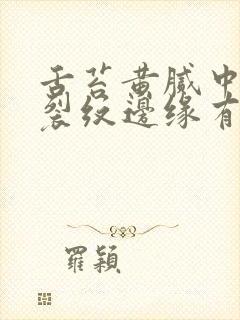 舌苔黄腻中
裂纹边缘有
羅穎